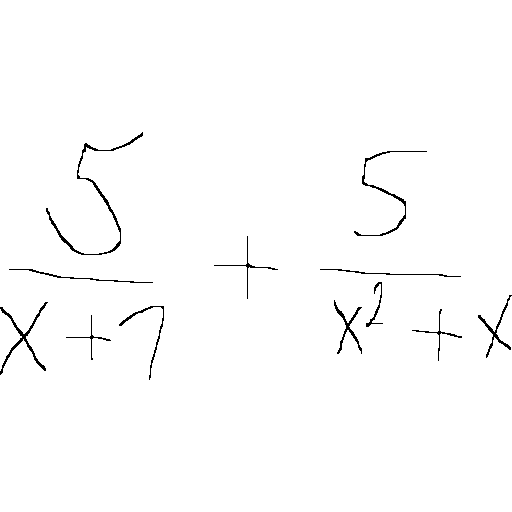 \frac{5}{x+7} + \frac{5}{x^2+x}